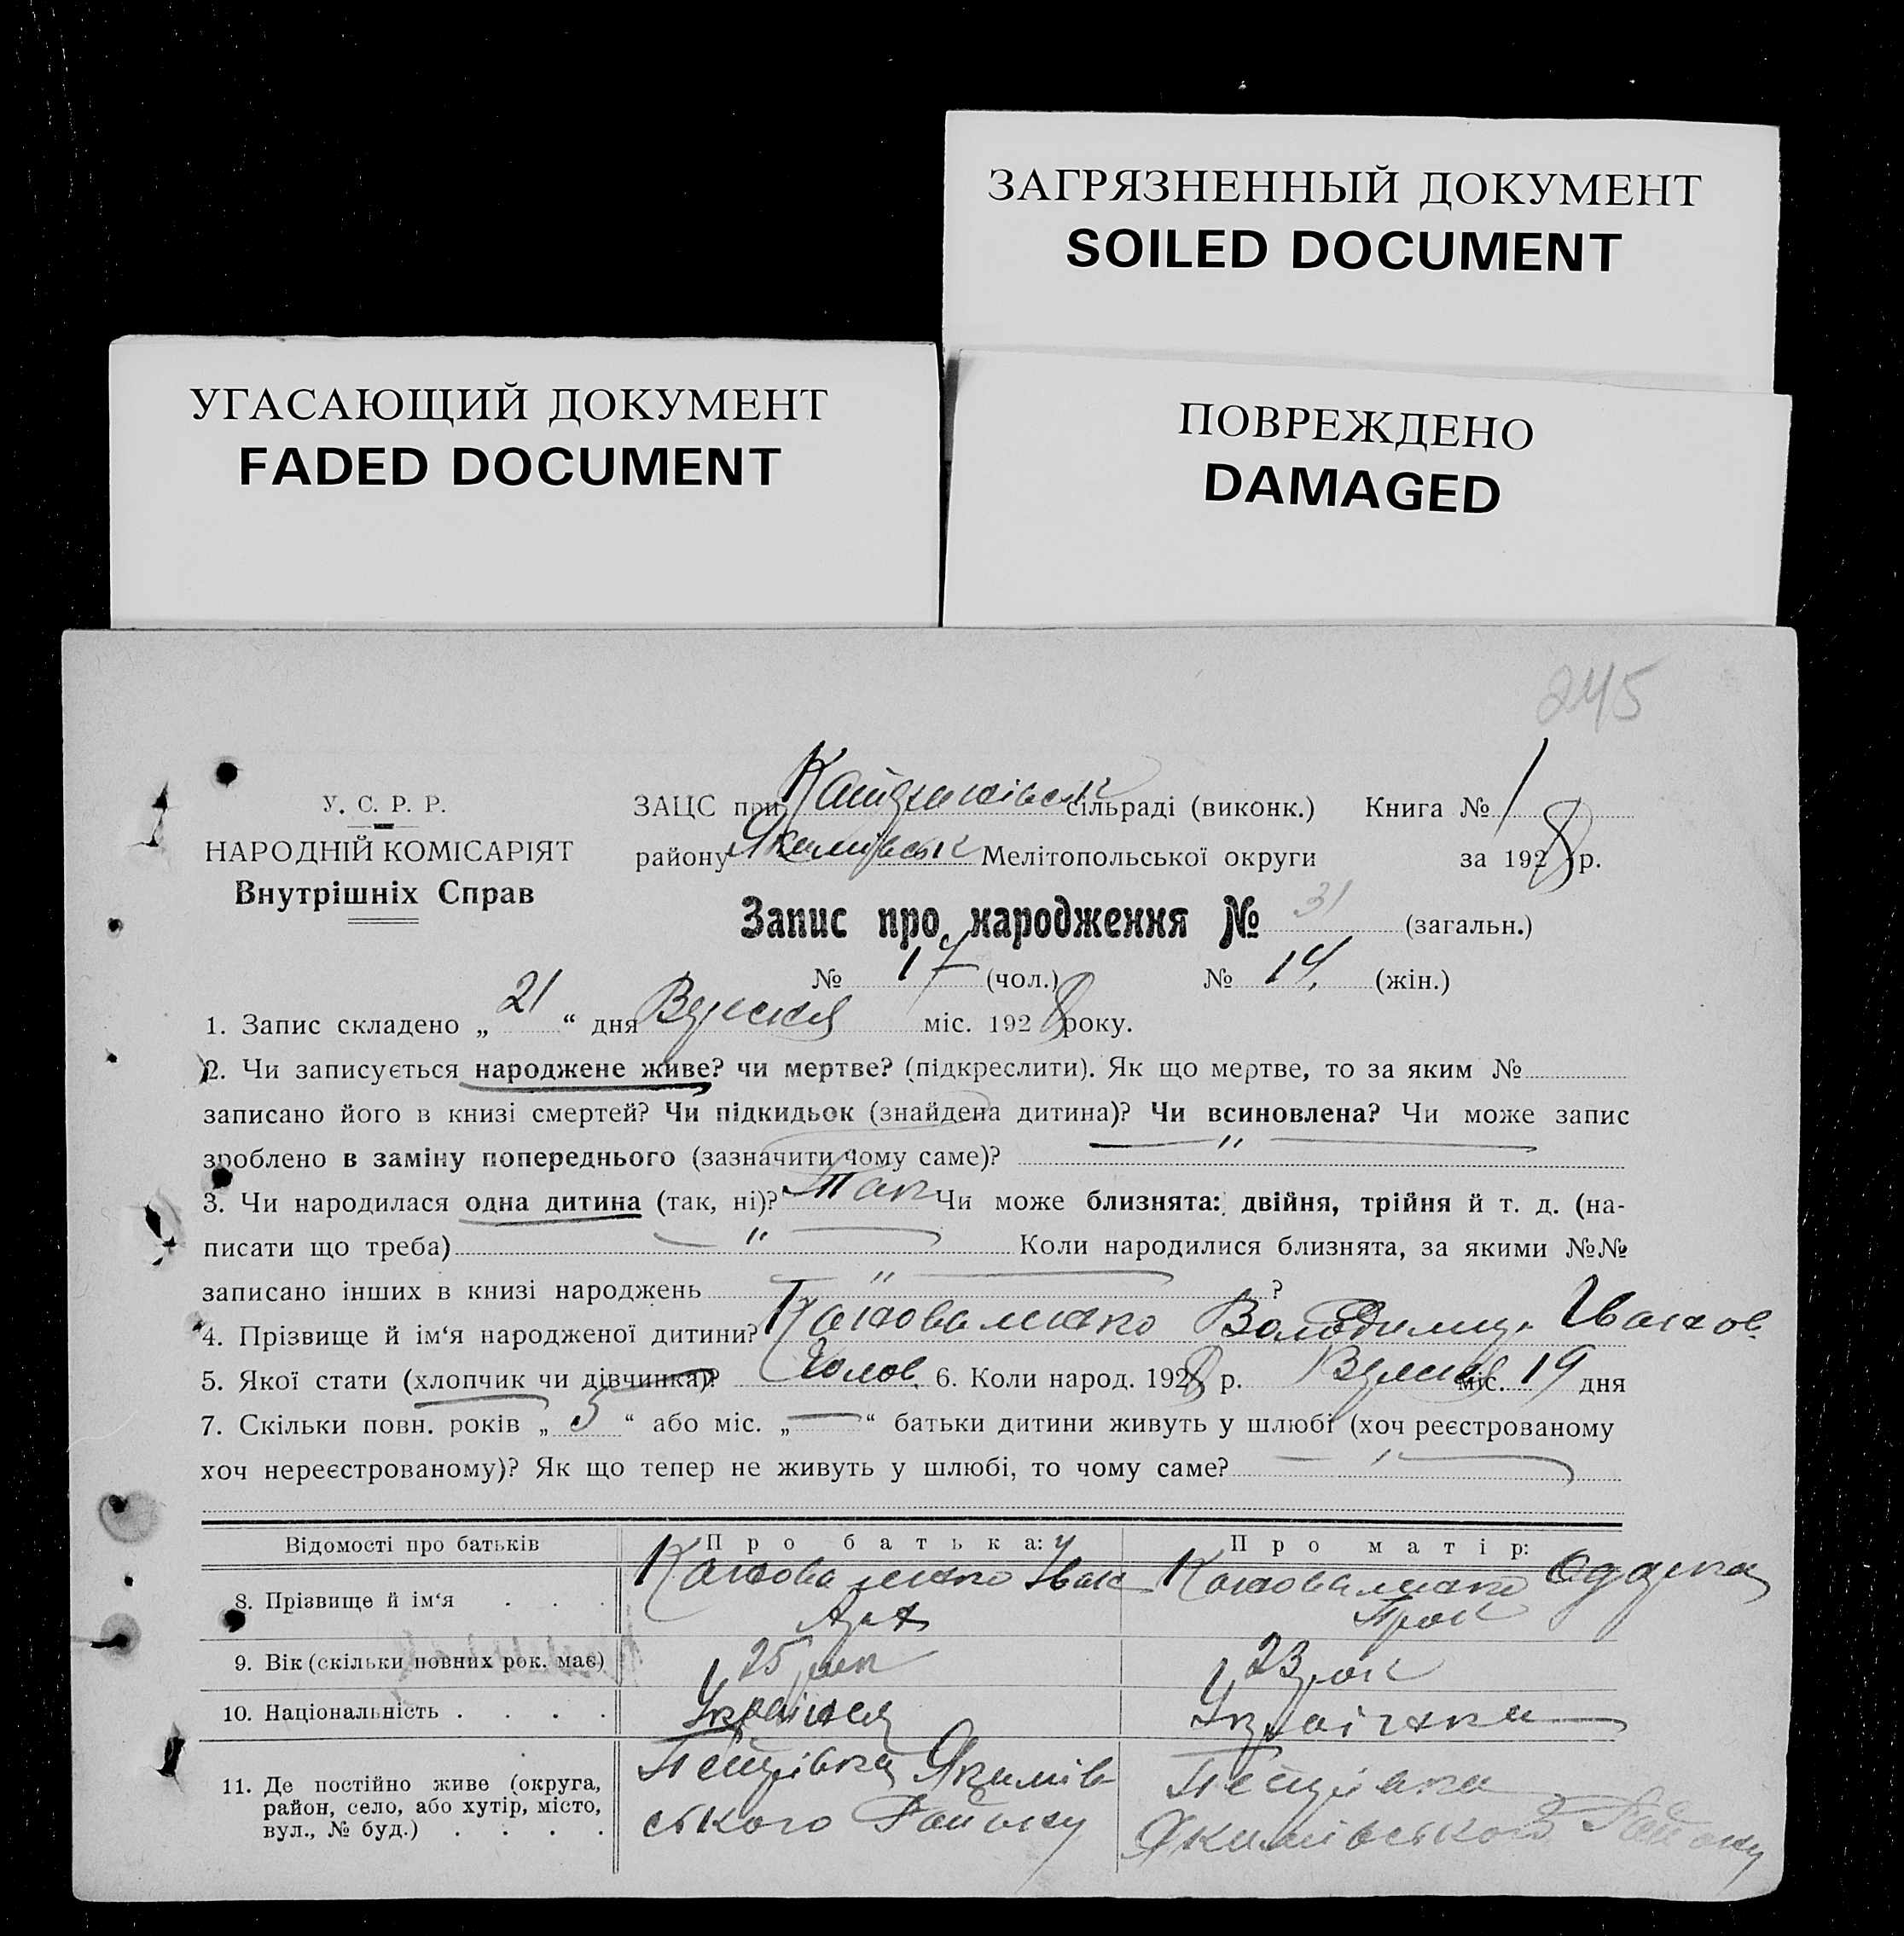 ЗАГРЯЗНЕННЫЙ ДОКУМЕНТ
SOILED DOCUMENT
УГАСАЮЩИЙ ДОКУМЕНТ
FADED DOCUMENT
ПОВРЕЖДЕНО
DAMAGED
245
У. С. Р. Р.
НАРОДНІЙ КОМІСАРІЯТ
Внутрішніх Справ
ЗАЦС при сільраді (виконк.) Книга № 1
району Якимівськ Мелітопольської округи за 1928 р.
Запис про народження № 31 (загальн.)
№ 17 (чол.) № 14 (жін.)
1. Запис складено „ 21 “ дня міс. 1928 року.
2. Чи записується народжене живе? чи мертве? (підкреслити). Як що мертве, то за яким №
записано його в книзі смертей? Чи підкидьок (знайдена дитина)? Чи всиновлена? Чи може запис
зроблено в заміну попереднього (зазначити чому саме)? — " —
3. Чи народилася одна дитина (так, ні)? Так Чи може близнята: двійня, трійня й т. д. (на-
писати що треба) — " — Коли народилися близнята, за якими №№
записано інших в книзі народжень — " — ?
4. Прізвище й ім‘я народженої дитини? Володимир Іванов
5. Якої стати (хлопчик чи дівчинка)? Чолов. 6. Коли народ. 1928 р. міс. 19 дня
7. Скільки повн. років „ 5 “ або міс. „ — “ батьки дитини живуть у шлюбі (хоч реєстрованому
хоч нереєстрованому)? Як що тепер не живуть у шлюбі, то чому саме?
Відомості про батьків Про батька: Про матір:
8. Прізвище й ім‘я . . . Іван
9. Вік (скільки повних рок. має) 25 рок 23 рок
10. Національність . . . . Українец Українка
11. Де постійно живе (округа, район, село, або хутір, місто, вул., № буд.) . . . .
Якимів
ського Району
Якимівського Району